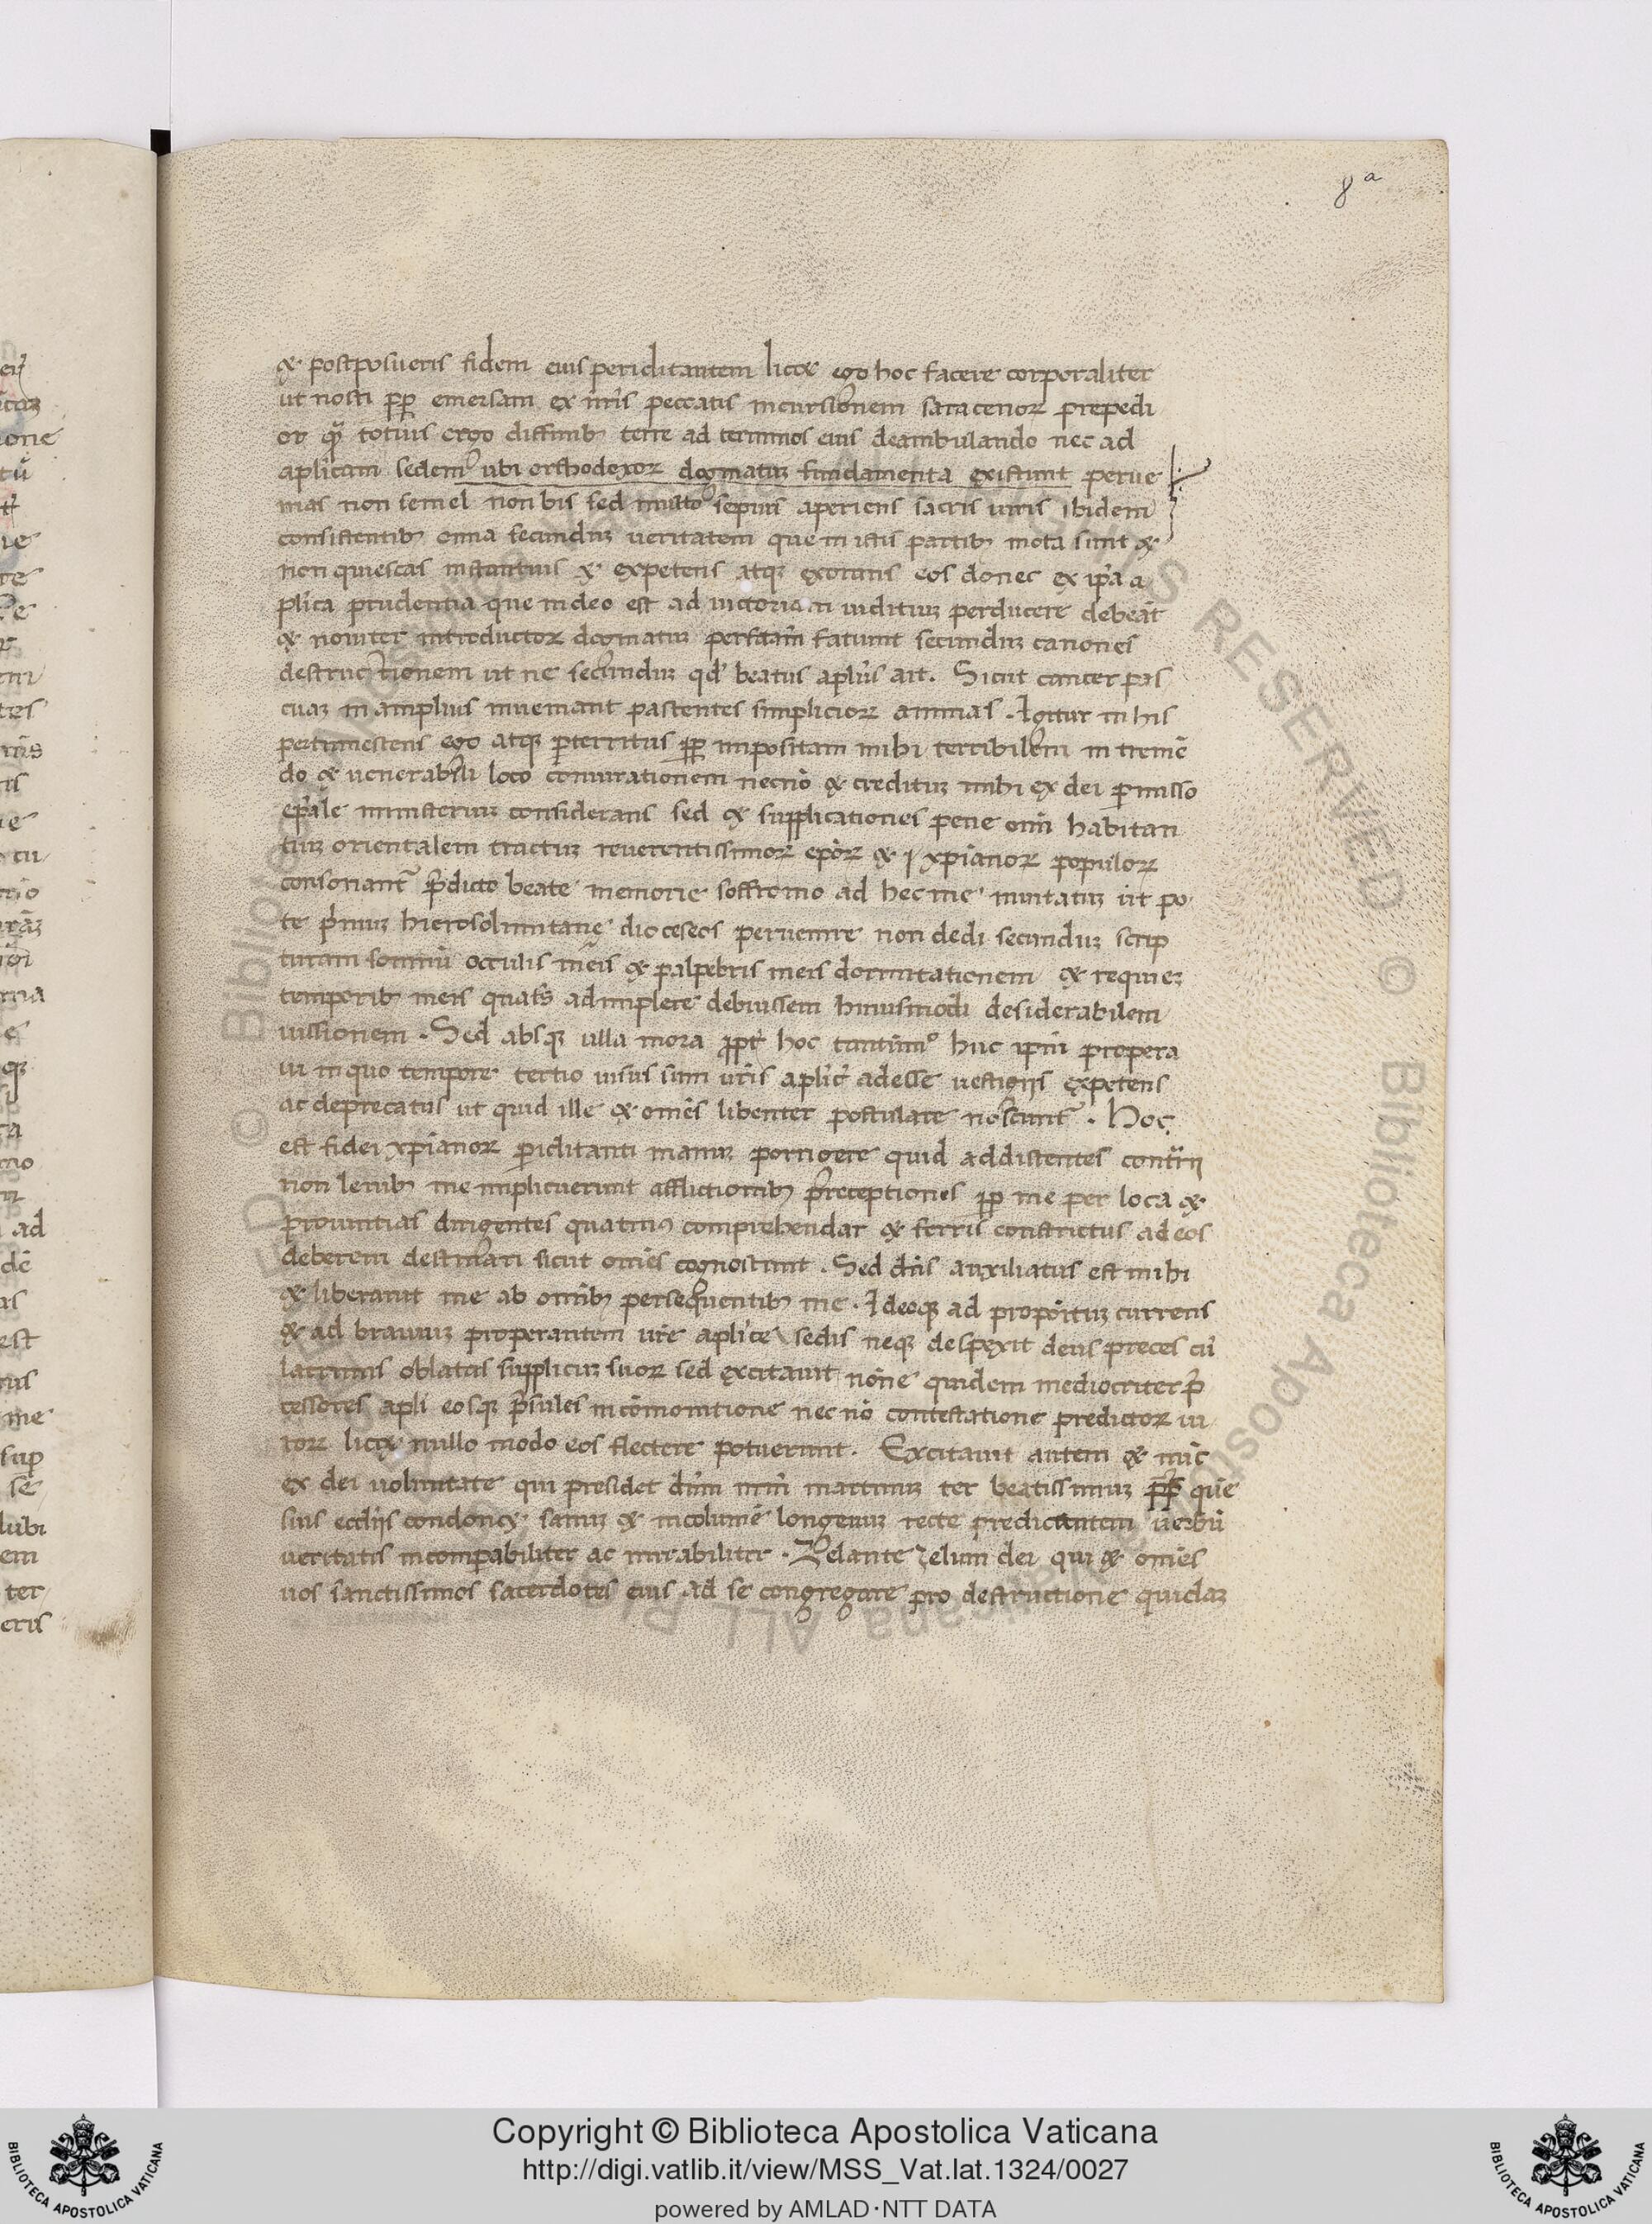 8ª
& postposueris fidem eius periclitantem licet ego hoc facere corporaliter
ut nosti pp emersam ex nr̄is peccatis incursionem saracenoꝝ prepedi
or qͣ totius ergo diffinibꝫ terre ad terminos eius deambulando nec ad
aplicam sedem ubi orthodoxoꝝ dogmatuꝫ fundamenta existunt perue
mas non semel non bis sed multo sepius aperiens sacris uiris ibidem
consistentibꝫ omnia secunduꝫ ueritatem que in istis partibꝫ mota sunt &
non quiescas instantius & expetens atqꝫ exorans eos donec ex ip̄a a
plica prudentia que in deo est ad uictoriam iudituꝫ perducere debeāt
& nouiter introductoꝝ dogmatuꝫ perfcām faciunt secunduꝫ canones
destructionem ut ne secunduꝫ qd̄ beatus aplus ait. Sicut cancer pas
cuaꝫ in amplius inueniant pascentes simplicioꝝ animas. Igitur in his
pertimescens ego atqꝫ perterritus pp impositam mihi terribilem in tremē
do & uenerabili loco coniurationem necnō & credituꝫ mihi ex dei pmisso
ep̄ale ministeriuꝫ considerans sed & supplicationes pene om̄i habitan
tiuꝫ orientalem tractuꝫ reuerentissimoꝝ ep̄oꝝ & xp̄ianoꝝ populoꝝ
consonant̄ p̄dicto beate memorie soffronio ad hec me inuitatuꝫ ut po
te p̄muꝫ hierosolimitane dioceseos peruenire non dedi secunduꝫ scrip
turam somnū occulis meis & palpebris meis dormitationem & requieꝫ
temporibꝫ meis quat̄s adimplere debuissem huiusmodi desiderabilem
iussionem. Sed absqꝫ ulla mora ppt̄ hoc tantūmo huc ip̄m propera
ui in quo tempore tertio uisus sum ur̄is aplic̄ adesse uestigijs expetens
ac deprecatus ut quid ille & om̄es libenter postulare noscunt̄. Hoc
est fidei xp̄ianoꝝ piclitanti manuꝫ porrigere quid addiscentes contr̄rii
non leuibꝫ me implicuerunt afflictionibꝫ p̄receptiones pp me per loca &
prouintias dirigentes quatinꝰ comprehendar & ferris constrictus ad eos
deberem destinari sicut om̄es cognoscunt. Sed dn̄s auxiliatus est mihi
& liberauit me ab om̄ibꝫ persequentibꝫ me. Ideoqꝫ ad propoituꝫ currens
& ad brauiuꝫ properantem ur̄e aplice sedis neqꝫ despexit deus preces cū
lacrimis oblatas supplicuꝫ suoꝝ sed excitauit nōne quidem mediocriter p̄
cessores apli eosqꝫ p̄sules in cōmonitione nec nō contestatione predictoꝝ ui
roꝝ licet nullo modo eos flectere potuerunt. Excitauit autem & nūc
ex dei uoluntate qui presidet dn̄m nr̄m martinuꝫ ter beatissimuꝫ pp̄ quē
suis ecclijs condonet sanuꝫ & incolumē longeuuꝫ recte predicantem uerbū
ueritatis incompabiliter ac mirabiliter. Zelante zelum dei qui & om̄es
uos sanctissimos sacerdotes eius ad se congregare pro destructione quidaꝫ
Copyright © Biblioteca Apostolica Vaticana
http://digi.vatlib.it/view/MSS_Vat.lat.1324/0027
powered by AMLAD·NTT DATA